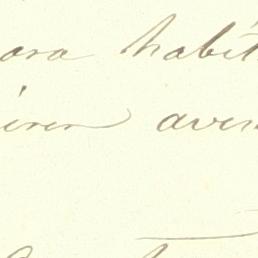 ora habit
iren aven